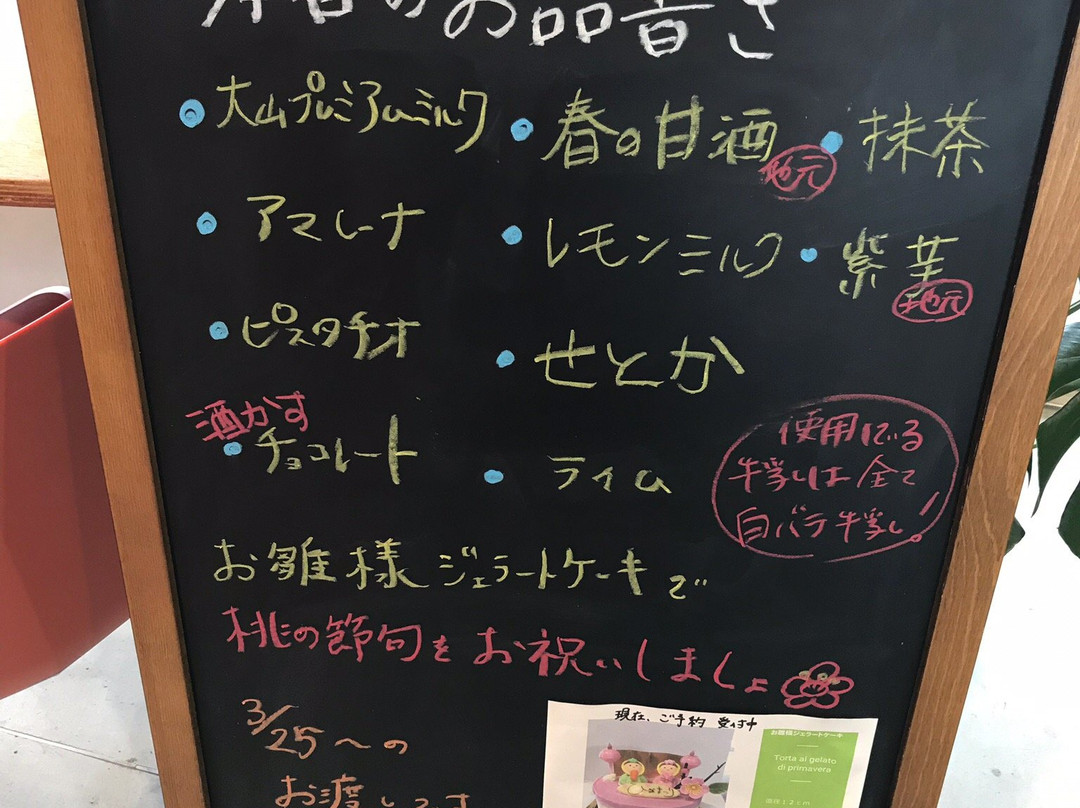 のお品書き
大山プレミアムミルク
春の甘酒
地元
抹茶
アマレーナ
レモンミルク
紫芋
地元
ピスタチオ
せとか
酒かす
チョコレート
ライム
使用している
牛乳は全て
白バラ牛乳!
お雛様ジェラートケーキで
桃の節句をお祝いしましょ
3/25〜の
お渡し
現在、ご予約 受付中
お雛様ジェラートケーキ
Torta al gelato
di primavera
直径12cm